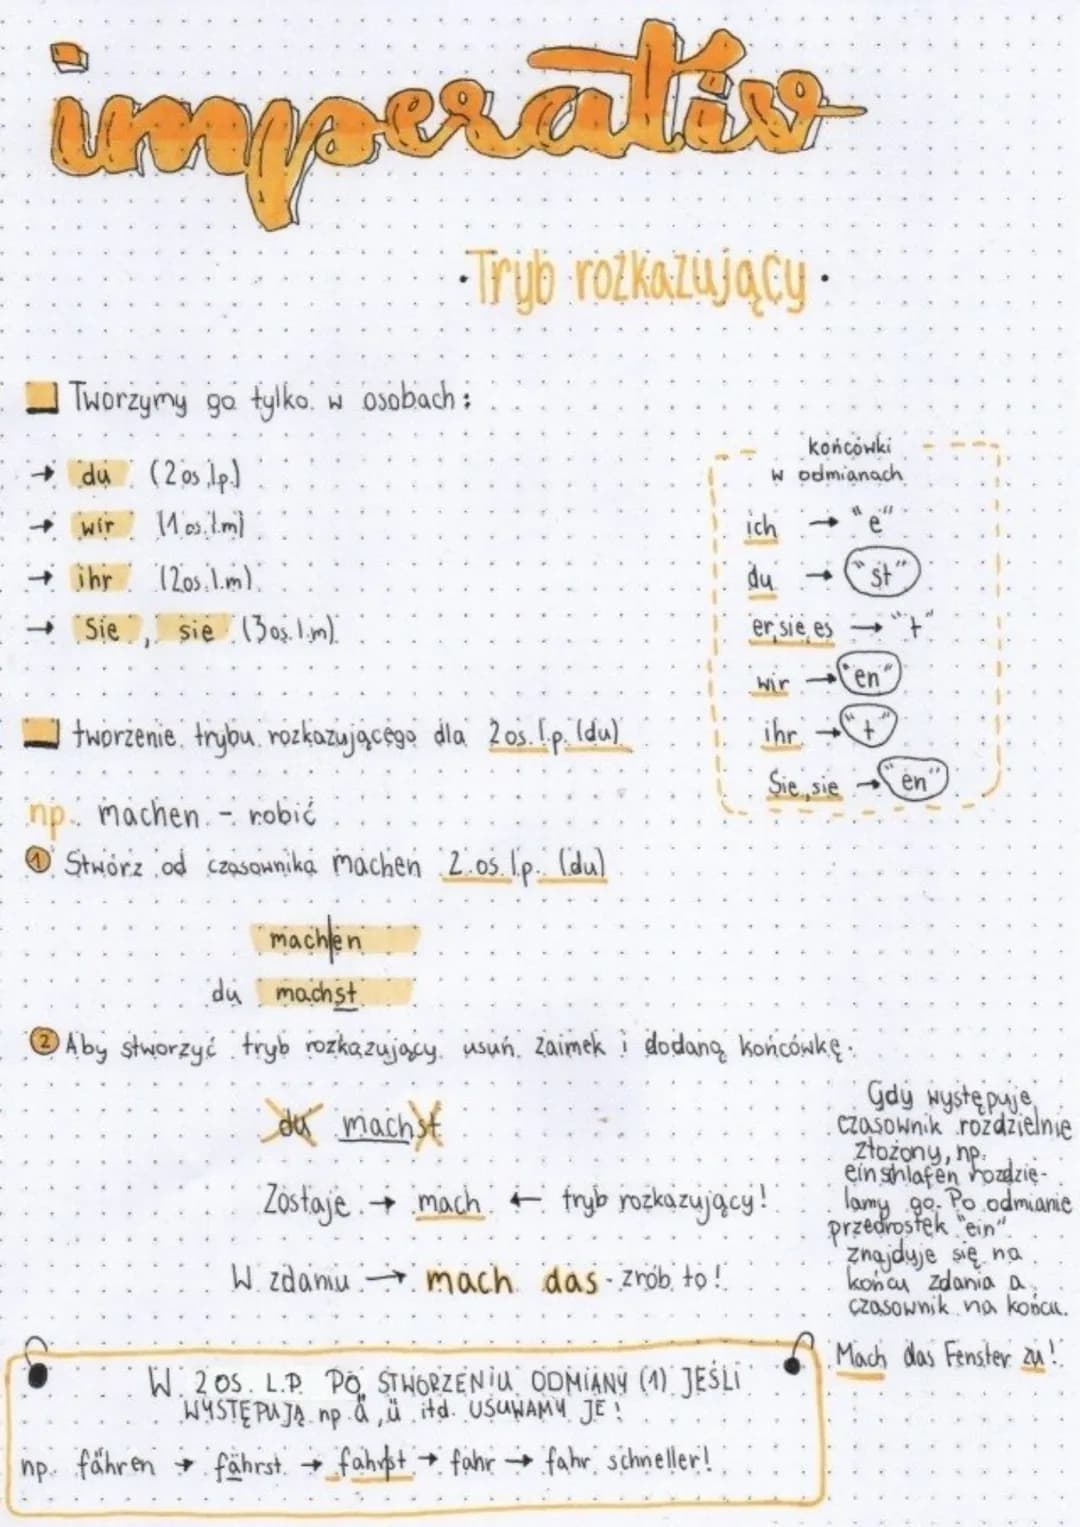 imperativ
·Tryb rozkazujący·
Tworzymy go tylko w osobach:
→ du (2 os. l.p.)
→ wir (1 os. l.m)
→ ihr (2 os. l.m)
→ Sie, sie (3 os. l.m)
końcówki
w odmianach
ich → "e"
du → "st"
er, sie, es → "t"
wir → "en"
ihr → "t"
Sie, sie → "en"
tworzenie trybu rozkazującego dla 2 os. l.p. (du)
np. machen - robić
1 Stwórz od czasownika machen 2. os. l.p. (du)
mach/en
du machst
2 Aby stworzyć tryb rozkazujący usuń zaimek i dodaną końcówkę.
du machst
Zostaje → mach ← tryb rozkazujący!
W zdaniu → mach das - zrób to!
Gdy występuje
czasownik rozdzielnie
złożony, np.
einschlafen rozdzie-
lamy go. Po odmianie
przedrostek "ein"
znajduje się na
końcu zdania a
czasownik na końcu.
Mach das Fenster zu!
W 2 OS. L.P. PO STWORZENIU ODMIANY (1) JEŚLI
WYSTĘPUJĄ np. ä, ü itd. USUWAMY JE!
np. fähren → fährst → fahrst → fahr → fahr schneller!